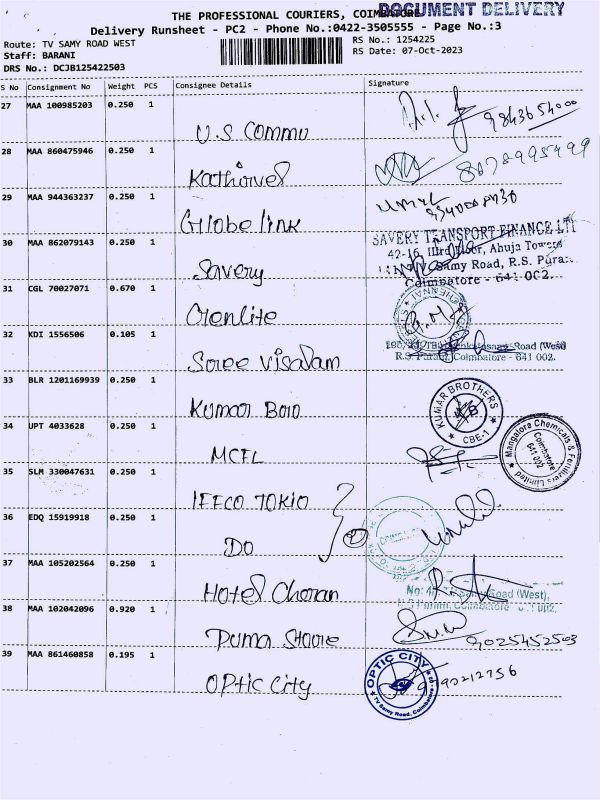 THE PROFESSIONAL COURIERS, COIMBATORE
DOCUMENT DELIVERY
Delivery Runsheet - PC2 - Phone No.:0422-3505555 - Page No.:3
Route: TV SAMY ROAD WEST
RS No.: 1254225
Staff: BARANI
RS Date: 07-Oct-2023
DRS No.: DCJB125422503
S No Consignment No Weight PCS Consignee Details Signature
27 MAA 100985203 0.250 1
U.S Commu
9843654000
28 MAA 860475946 0.250 1
Kathirvel
8678995499
29 MAA 944363237 0.250 1
Globe link
30 MAA 862079143 0.250 1
Savery
SAVERY TRANSPORT FINANCE LTD
42-16, IIIrd Floor, Ahuja Towers
Samy Road, R.S. Puram
Coimbatore - 641 002.
31 CGL 70027071 0.670 1
Glenlite
32 KDI 1556506 0.105 1
Soree Visalam
Road (West)
R.S. Puram, Coimbatore - 641 002.
33 BLR 1201169939 0.250 1
Kumar Bro
KUMAR BROTHERS
KB
CBE-1
34 UPT 4033628 0.250 1
MCFL
Mangalore Chemicals & Fertilizers Limited
Coimbatore
641 002
35 SLM 330047631 0.250 1
IFFCO TOKIO
36 EDQ 15919918 0.250 1
DO
37 MAA 105202564 0.250 1
Hotel Choran
Road (West),
38 MAA 102042096 0.920 1
Puma Stoore
9025452503
39 MAA 861460858 0.195 1
Optic City
OPTIC CITY
TV Samy Road, Coimbatore
90212756